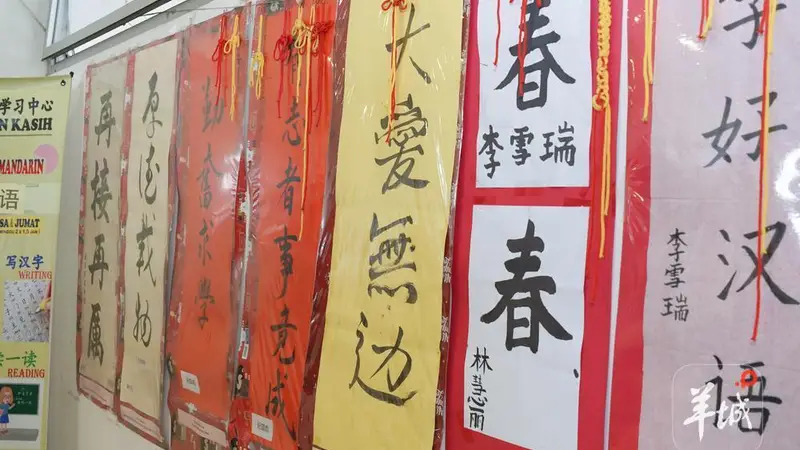 学习中心
N KASIH
MANDARIN
语
SA & JUMAT
写汉字
WRITING
一读
READING
再接再厲
厚德载物
勤奮求学
有志者事竟成
大愛無边
春
李雪瑞
春
林慧丽
学好汉语
李雪瑞
羊城